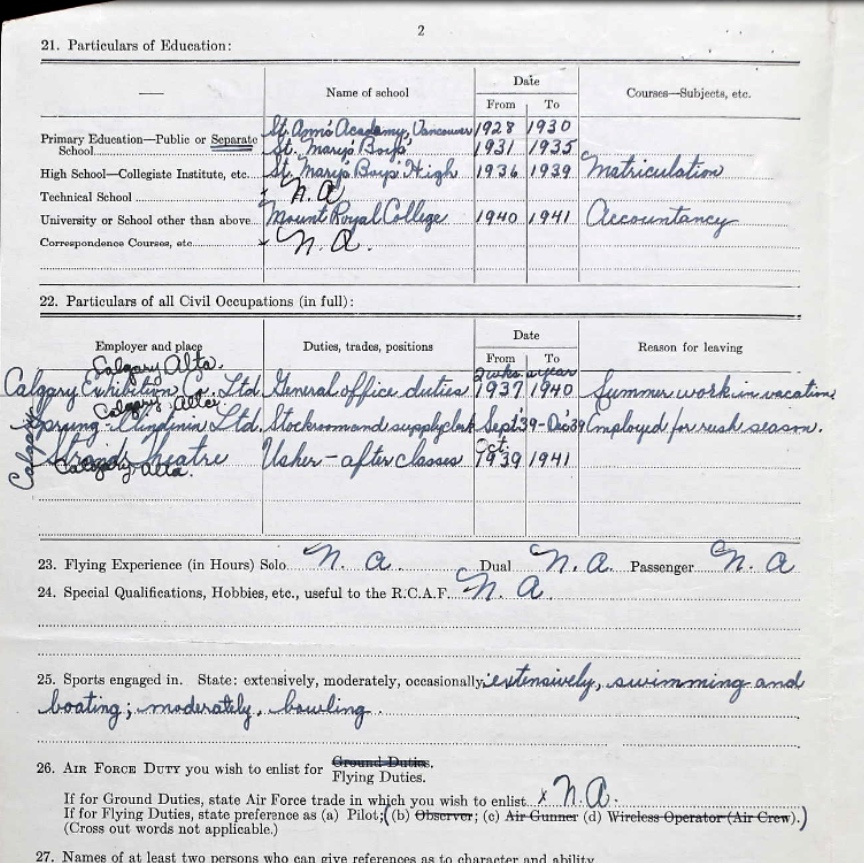 2
21. Particulars of Education:
Name of school Date Courses—Subjects, etc.
From To
St. Ann's Academy, Vancouver 1928 1930
Primary Education—Public or Separate
School St. Mary's Boys' 1931 1935
High School—Collegiate Institute, etc. St. Mary's Boys' High 1936 1939 Matriculation
Technical School N. A
University or School other than above Mount Royal College 1940 1941 Accountancy
Correspondence Courses, etc. N. A.
22. Particulars of all Civil Occupations (in full):
Employer and place Duties, trades, positions Date Reason for leaving
From To
Calgary Alta. 2 wks. a year
Calgary Exhibition Co. Ltd General office duties 1937 1940 Summer work in vacation
Calgary Alta
Ltd. Stockroom and supply clerk Sept '39 - Dec 39 Employed for rush season.
Calgary
Oct.
Theatre Usher - after classes 1939 1941
Calgary Alta.
23. Flying Experience (in Hours) Solo N. A. Dual N. A. Passenger N. A
24. Special Qualifications, Hobbies, etc., useful to the R.C.A.F. N. A.
25. Sports engaged in. State: extensively, moderately, occasionally: extensively, swimming and
boating; moderately, bowling.
26. AIR FORCE DUTY you wish to enlist for Ground Duties.
Flying Duties.
If for Ground Duties, state Air Force trade in which you wish to enlist x N. A.
If for Flying Duties, state preference as (a) Pilot; (b) Observer; (c) Air Gunner (d) Wireless Operator (Air Crew).)
(Cross out words not applicable.)
27. Names of at least two persons who can give references as to character and ability